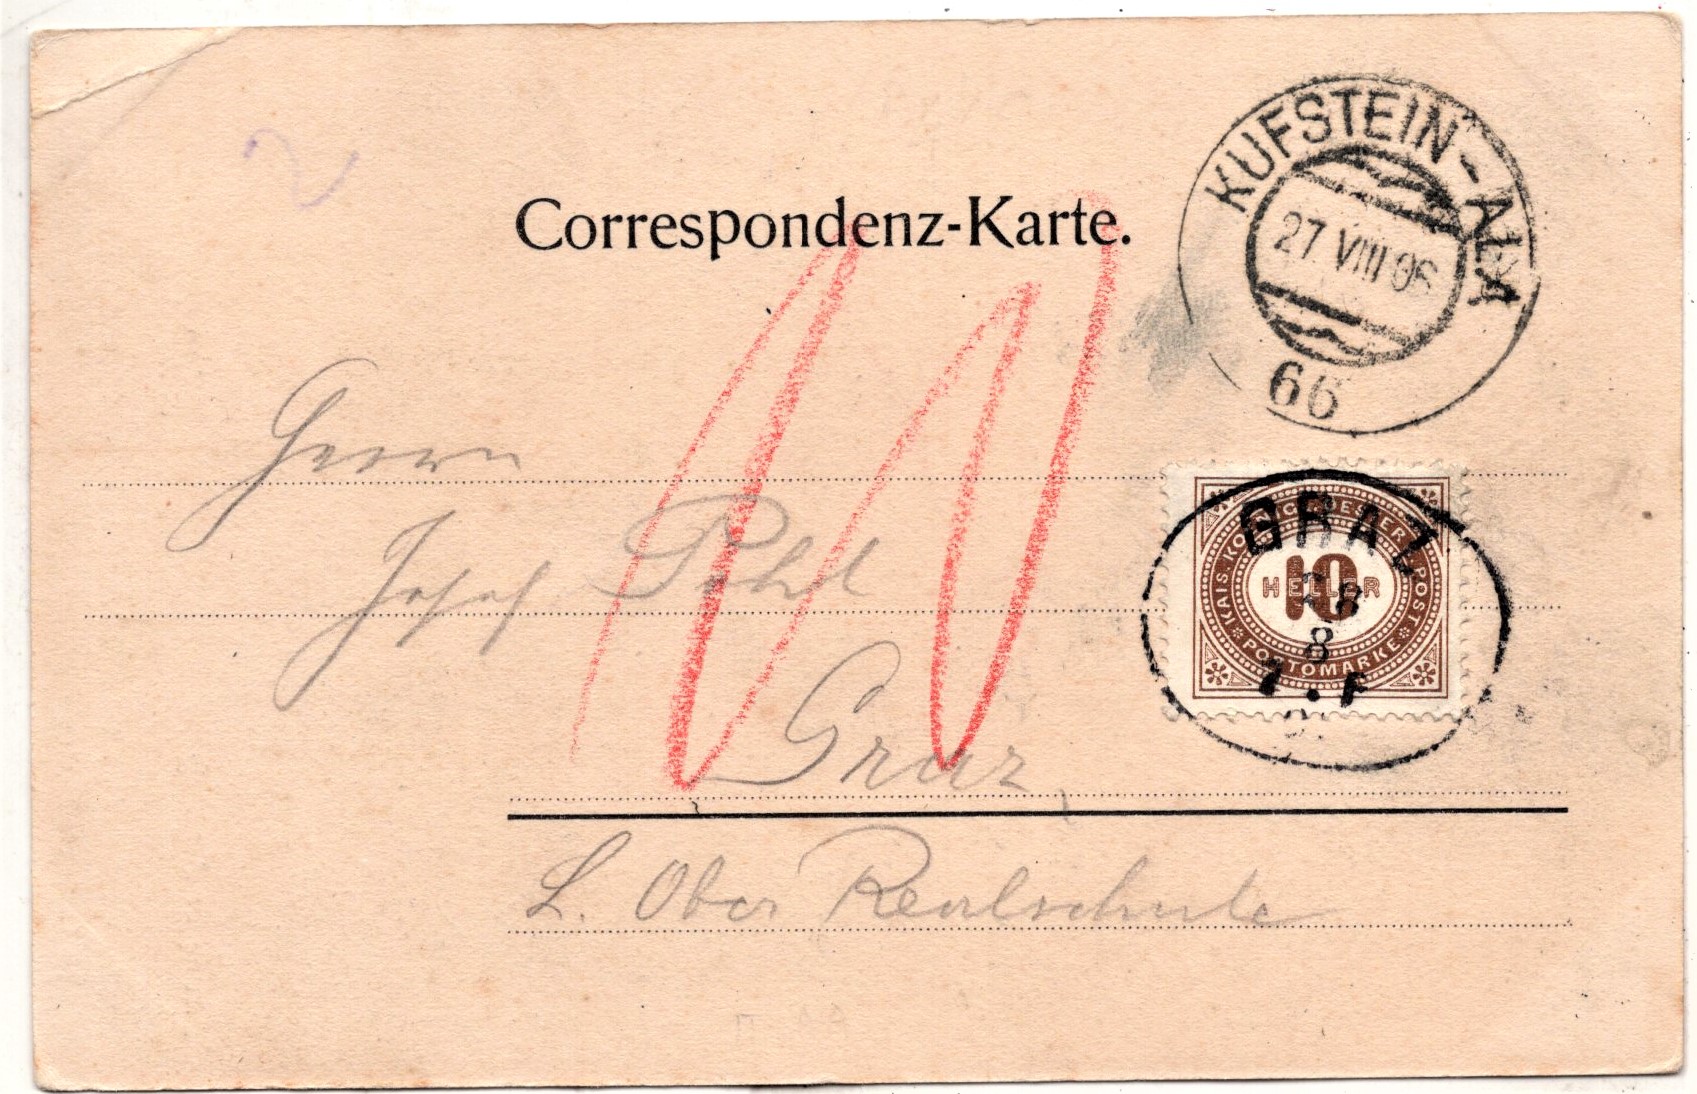 Correspondenz-Karte.
KUFSTEIN-ALA
27 VIII 06
66
10
Herrn
Josef Pohl
Graz,
L. Ober Realschule
KAIS. KÖNIGL. OESTERR. POST
10
HELLER
PORTOMARKE
GRAZ
28
8
7.F